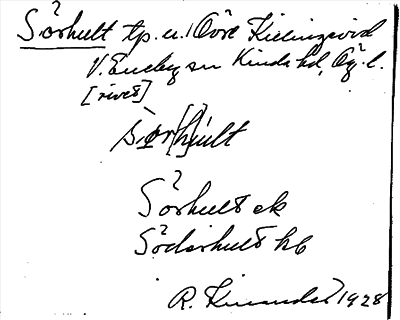 Sörhult tp. u. Övre Kielingsvid
V. Eneby sn Kinds hd, Ög. l.
[rivet]
Sörhult ek
Söderhult kb
R. Linander 1928